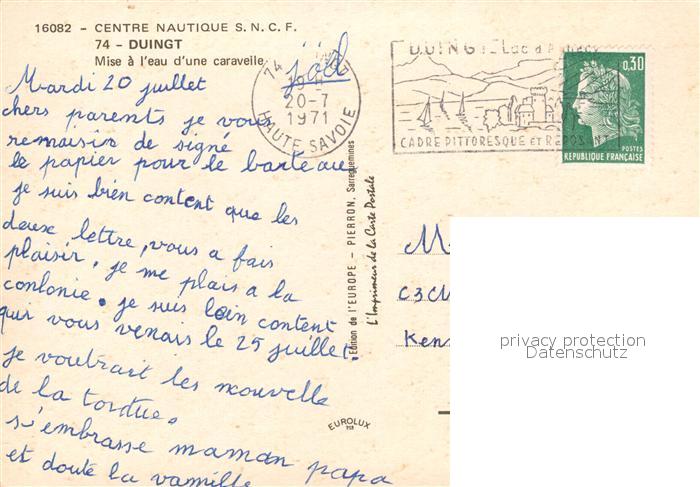 16082 - CENTRE NAUTIQUE S. N. C. F.
74 - DUINGT
Mise à l'eau d'une caravelle
joël
Mardi 20 juillet
chers parents je vous
remaisis de signé
le papier pour le barteau
je suis bien content que les
deux lettre, vous a fais
plaisir. je me plais a la
conlonie. je suis bien content
qui vous venais le 25 juillet.
je voutrait les nouvelle
de la tortue.
s'embrasse maman papa
et doute la vamille
74
19 H
20-7
1971
HAUTE SAVOIE
DUINGT Lac d'Annecy
CADRE PITTORESQUE ET REPOS
0,30
POSTES
REPUBLIQUE FRANÇAISE
Edition de l'EUROPE - PIERRON, Sarreguemines
L'Imprimeur de la Carte Postale
EUROLUX
M
Ken
privacy protection
Datenschutz